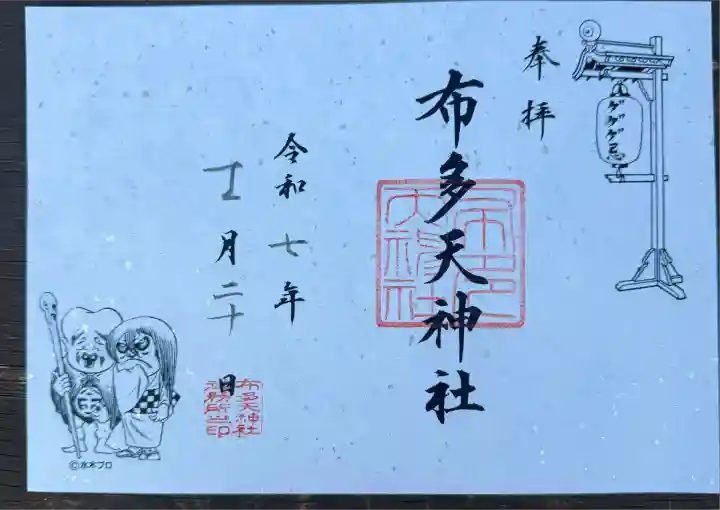 奉拝
ゲゲゲ忌
布多天神社
令和七年
十一月二十日
布多天神社
社務所之印
©水木プロ